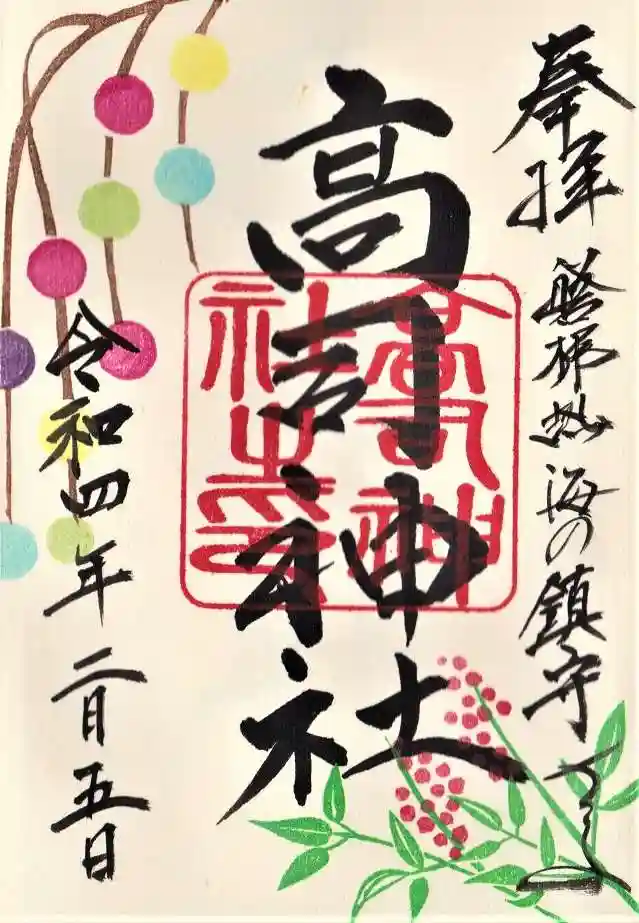 奉拝 磐梯熱海の鎮守
高司神社
高司神社之印
令和四年二月五日